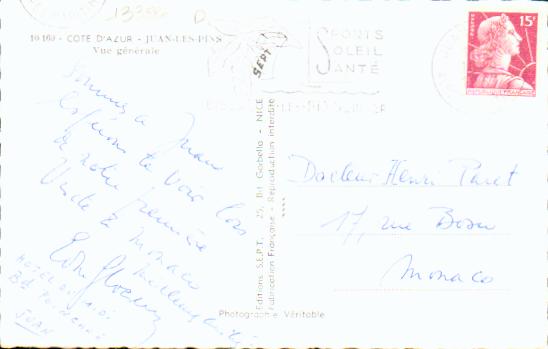 10 160 - COTE D'AZUR - JUAN-LES-PINS
Vue générale
SPORTS
SOLEIL
SANTÉ
15F
POSTES
RÉPUBLIQUE FRANÇAISE
Sommes à Juan
Espérons te voir lors
de notre première
Visite à Monaco
HOTEL DU MIDI
Bd POINCARÉ
JUAN
Editions S.E.P.T., 25, Bd Gorbella - NICE
Fabrication Française - Reproduction interdite
SEPT
Photographie Véritable
Docteur Henri
17, rue Bosio
Monaco